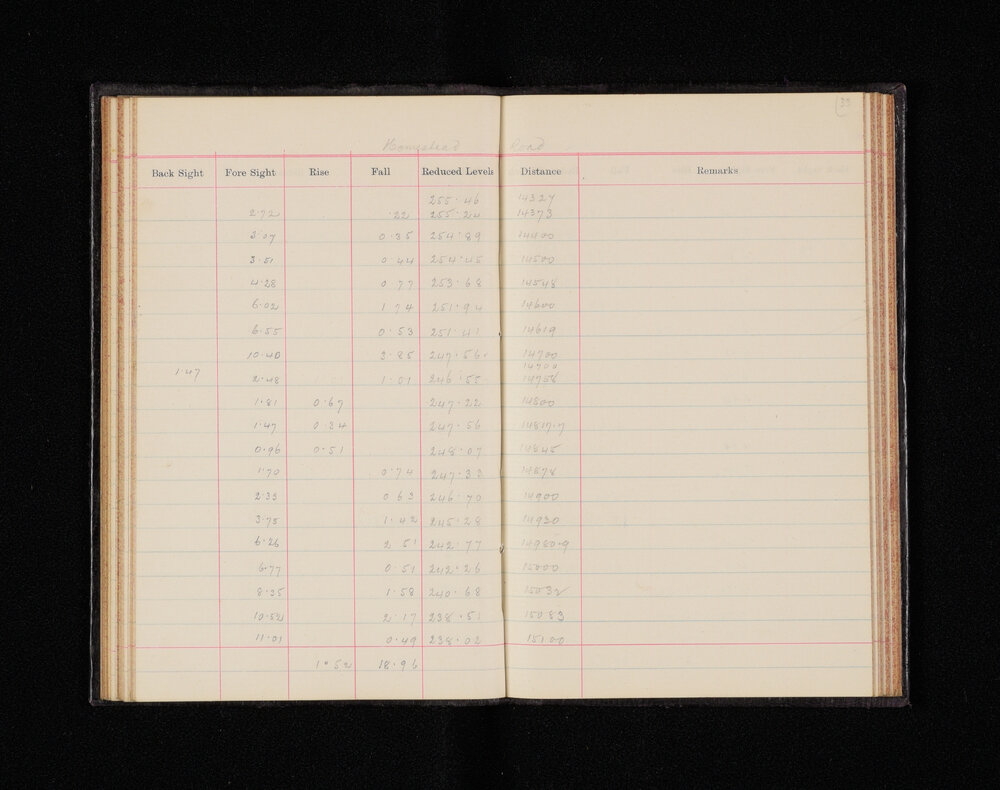 Homestead Road
Back Sight Fore Sight Rise Fall Reduced Levels Distance Remarks
255.46 14327
2.72 .22 255.24 14373
3.07 0.35 254.89 14400
3.51 0.44 254.45 14500
4.28 0 77 253.68 14548
6.02 1 74 251.94 14600
6.55 0.53 251.41 14619
10.40 3.85 247.56. 14700
1.47 14700
2.48 1.01 246.55 14758
1.81 0.67 247.22 14800
1.47 0.34 247.56 14817.7
0.96 0.51 248.07 14845
1.70 0.74 247.33 14878
2.33 0 63 246.70 14900
3.75 1.42 245.28 14930
6.26 2 51 242.77 14980.9
6.77 0.51 242.26 15000
8.35 1.58 240.68 15032
10.52 2.17 238.51 15083
11.01 0.49 238.02 15100
1.52 18.96